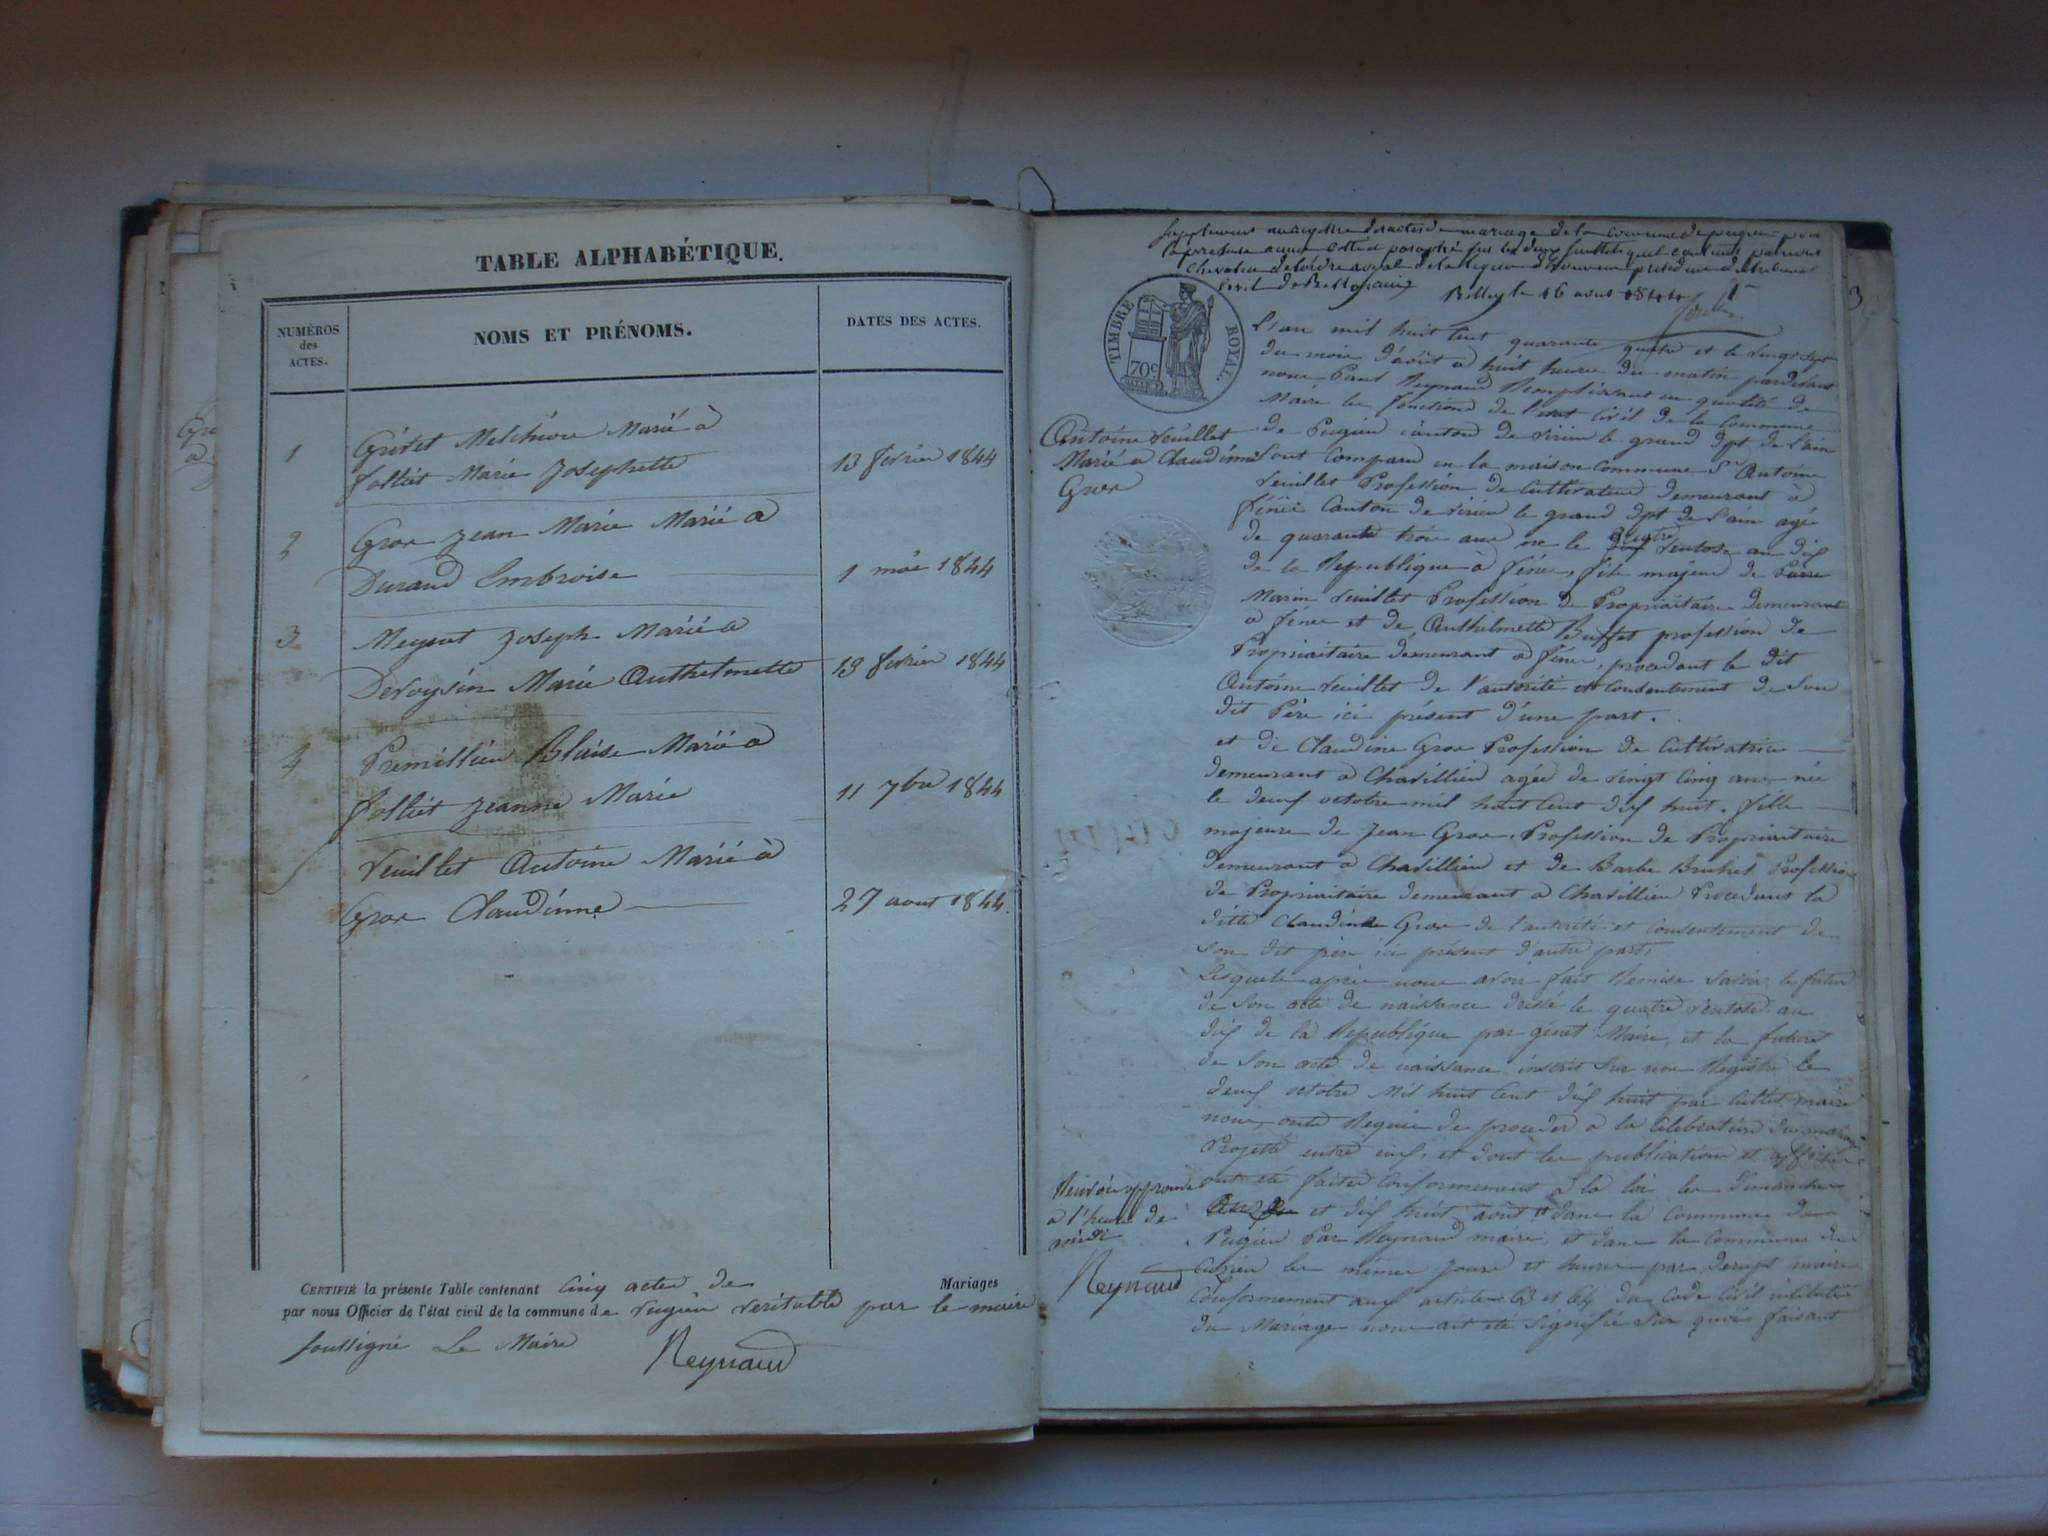 TABLE ALPHABÉTIQUE.
NUMÉROS des ACTES.
NOMS ET PRÉNOMS.
DATES DES ACTES.
1 Melchior Marié à
Marie Josephette 13 février 1844
2 Gros Jean Marie Marié a
Durand Ambroise 1 mai 1844
3 Joseph Marié a
Devoysin Marie Anthelmette 13 février 1844
4 Premillieu Blaise Marié a
Jeanne Marie 11 7bre 1844
5 Veuillet Antoine Marié à
Gros Claudinne 27 aout 1844.
CERTIFIÉ la présente Table contenant Cinq actes de Mariages
par nous Officier de l'état civil de la commune de Pugieu véritable par le maire
soussigné Le Maire Reynaud
3
Supplement au registre des actes de mariage de la commune de pugieu
par nous
Chevalier de l'ordre royal de la légion d'honneur président du tribunal
Civil de Belley le 16 aout 1844
TIMBRE ROYAL.
70c
L'an mil huit Cent quarante quatre et le vingt sept
du mois d'août a huit heures du matin pardevant
nous Paul Reynaud Remplissant en qualité de
Maire les fonctions de l'état Civil de la Commune
Antoine Veuillet
Marié a Claudinne
Gros
de Pugieu Canton de Virieu le grand dpt de l'ain
Sont Comparu en la maison Commune Sr Antoine
Veuillet Profession de Cultivateur demeurant à
Canton de Virieu le grand dpt de l'ain agé
de quarante trois ans ne le quatre Ventose an dix
de la Republique à fils majeur de
Marin Veuillet Profession de Propriaitaire demeurant
a et de Anthelmette Buffet profession de
Propriaitaire demeurant a procedant le dit
Antoine Veuillet de l'autorité et consentement de Son
dit Père ici présent d'une part.
et de Claudine Gros Profession de Cultivatrice
demeurant a Chavillieu agée de vingt Cinq ans née
le deux octobre mil huit Cent dix huit. fille
majeure de Jean Gros Profession de Propriaitaire
demeurant a Chavillieu et de Barbe Profession
de Propriaitaire demeurant a Chavillieu Procedant la
ditte Claudine Gros de l'autorité et consentement de
Son dit père ici présent d'autre part,
Lesquels après nous avoir fait Remise savoir, le futur
de Son acte de naissance dréssé le quatre Ventose an
dix de la Republique par Maire, et la future
de Son acte de naissance inscrit Sur nos Registre le
deux octobre Mil huit Cent dix huit par maire
nous onts Requis de proceder a la Celebration du mariage
Projetté entre eux, et dont les publications et affiches
ont été faites Conformement à la loi les dimanches
et dix huit août dans la Commune de
Pugieu Par Reynaud maire, et dans la Commune de
les mêmes jours et heures par maire
Conformement aux articles 63 et 64 du Code Civil
du Mariage nous ait été Signifiée faisant
Renvoi approuvé
a l'heure de
midi
Reynaud